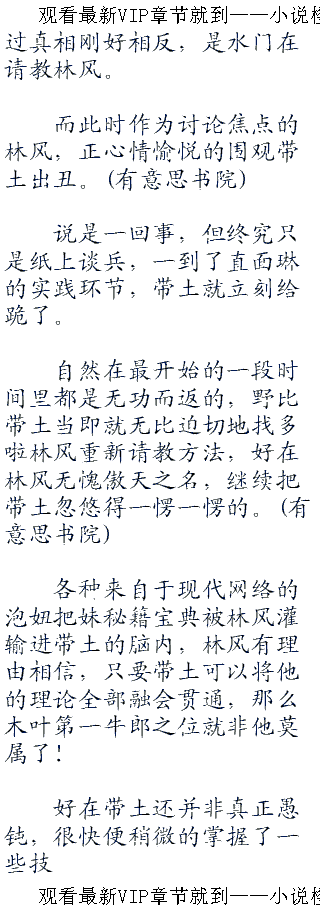 观看最新VIP章节就到——小说检
过真相刚好相反，是水门在
请教林风。
而此时作为讨论焦点的
林风，正心情愉悦的围观带
土出丑。(有意思书院)
说是一回事，但终究只
是纸上谈兵，一到了直面琳
的实践环节，带土就立刻给
跪了。
自然在最开始的一段时
间里都是无功而返的，野比
带土当即就无比迫切地找多
啦林风重新请教方法，好在
林风无愧傲天之名，继续把
带土忽悠得一愣一愣的。(有
意思书院)
各种来自于现代网络的
泡妞把妹秘籍宝典被林风灌
输进带土的脑内，林风有理
由相信，只要带土可以将他
的理论全部融会贯通，那么
木叶第一牛郎之位就非他莫
属了!
好在带土还并非真正愚
钝，很快便稍微的掌握了一
些技
观看最新VIP章节就到——小说检